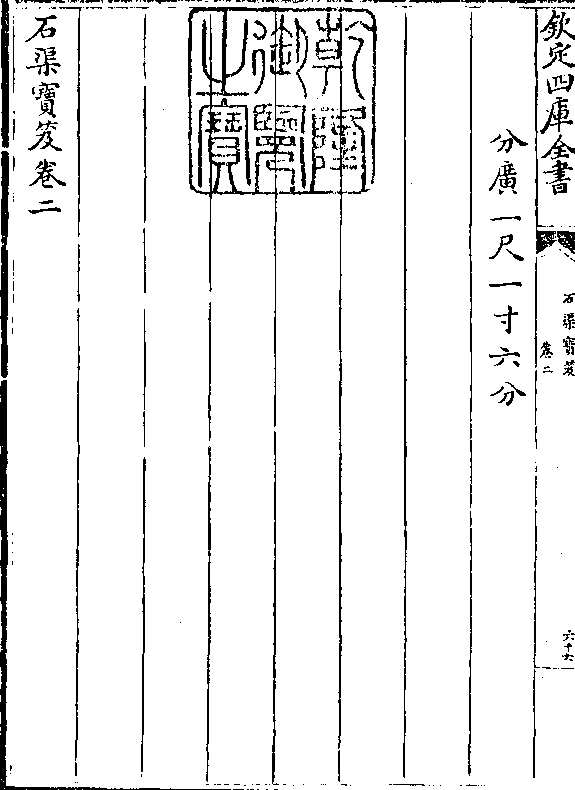 欽定四庫全書
石渠寶笈
卷二
六十六
分廣一尺一寸六分
乾隆御覽之寶
石渠寶笈卷二